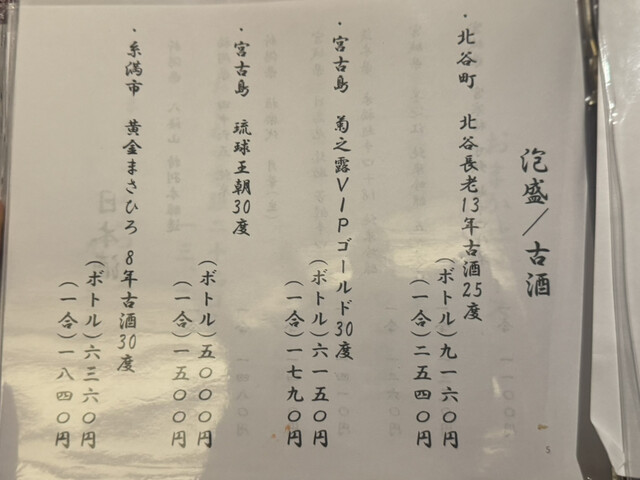 泡盛／古酒
・北谷町 北谷長老13年古酒25度
（ボトル）九一六〇円
（一合）二五四〇円
・宮古島 菊之露VIPゴールド30度
（ボトル）六一五〇円
（一合）一七九〇円
・宮古島 琉球王朝30度
（ボトル）五〇〇〇円
（一合）一五〇〇円
・糸満市 黄金まさひろ 8年古酒30度
（ボトル）六三六〇円
（一合）一八四〇円
5